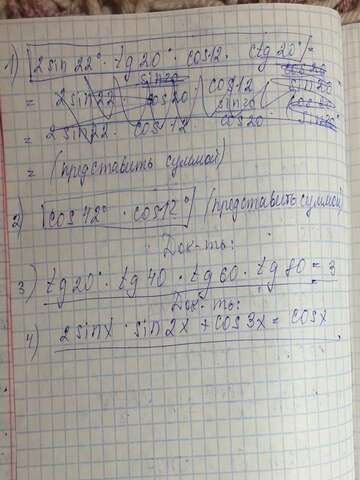 1) 2 sin 22° · tg 20° · cos 12 · ctg 20° =
= 2 sin 22 · sin 20 cos 20 · cos 12 · cos 20 sin 20
= 2 sin 22 · cos 12 sin 20 cos 20
= (представить суммой)
2) cos 42° · cos 12° (представить суммой)
Док-ть:
3) tg 20° · tg 40 · tg 60 · tg 80 = 3
Док-ть:
4) 2 sin x · sin 2x + cos 3x = cos x